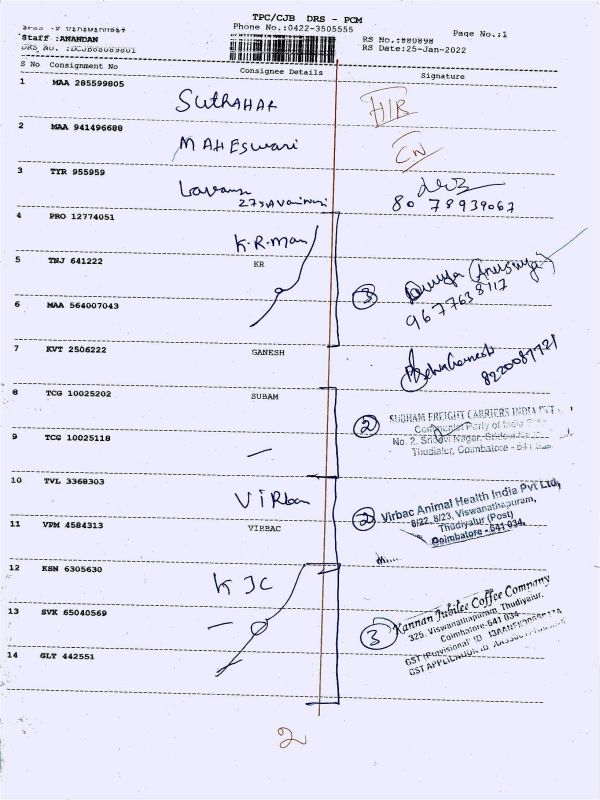 TPC/CJB DRS - PCM
Phone No.:0422-3505555
Page No.:1
RS No.:880898
RS Date:25-Jan-2022
Staff :ANANDAN
S No Consignment No Consignee Details Signature
1 MAA 285599805 SUTHAHAR H/R
2 MAA 941496688 MAHESwari CN
3 TYR 955959
80 78939067
4 PRO 12774051 K.R.man
5 TNJ 641222 KR
3 (Anusuya)
9677638117
6 MAA 564007043
7 KVT 2506222 GANESH
8220087721
8 TCG 10025202 SUBAM
2 SUBHAM FREIGHT CARRIERS INDIA PVT
Communist Party of India
No. 2, Sridevi Nagar,
Thudialur, Coimbatore - 641
9 TCG 10025118 —
10 TVL 3368303 VIRbac
2 Virbac Animal Health India Pvt Ltd,
8/22, 8/23, Viswanathapuram,
Thudiyalur (Post)
Coimbatore - 641 034.
11 VPM 4584313 VIRBAC
12 KSN 6305630 KJC
13 SVK 65040569 —
3 Kannan Jubilee Coffee Company
325, Viswanathapuram, Thudiyalur,
Coimbatore-641 034
GST (Provisional) ID
GST APPLICATION
14 GLT 442551
2